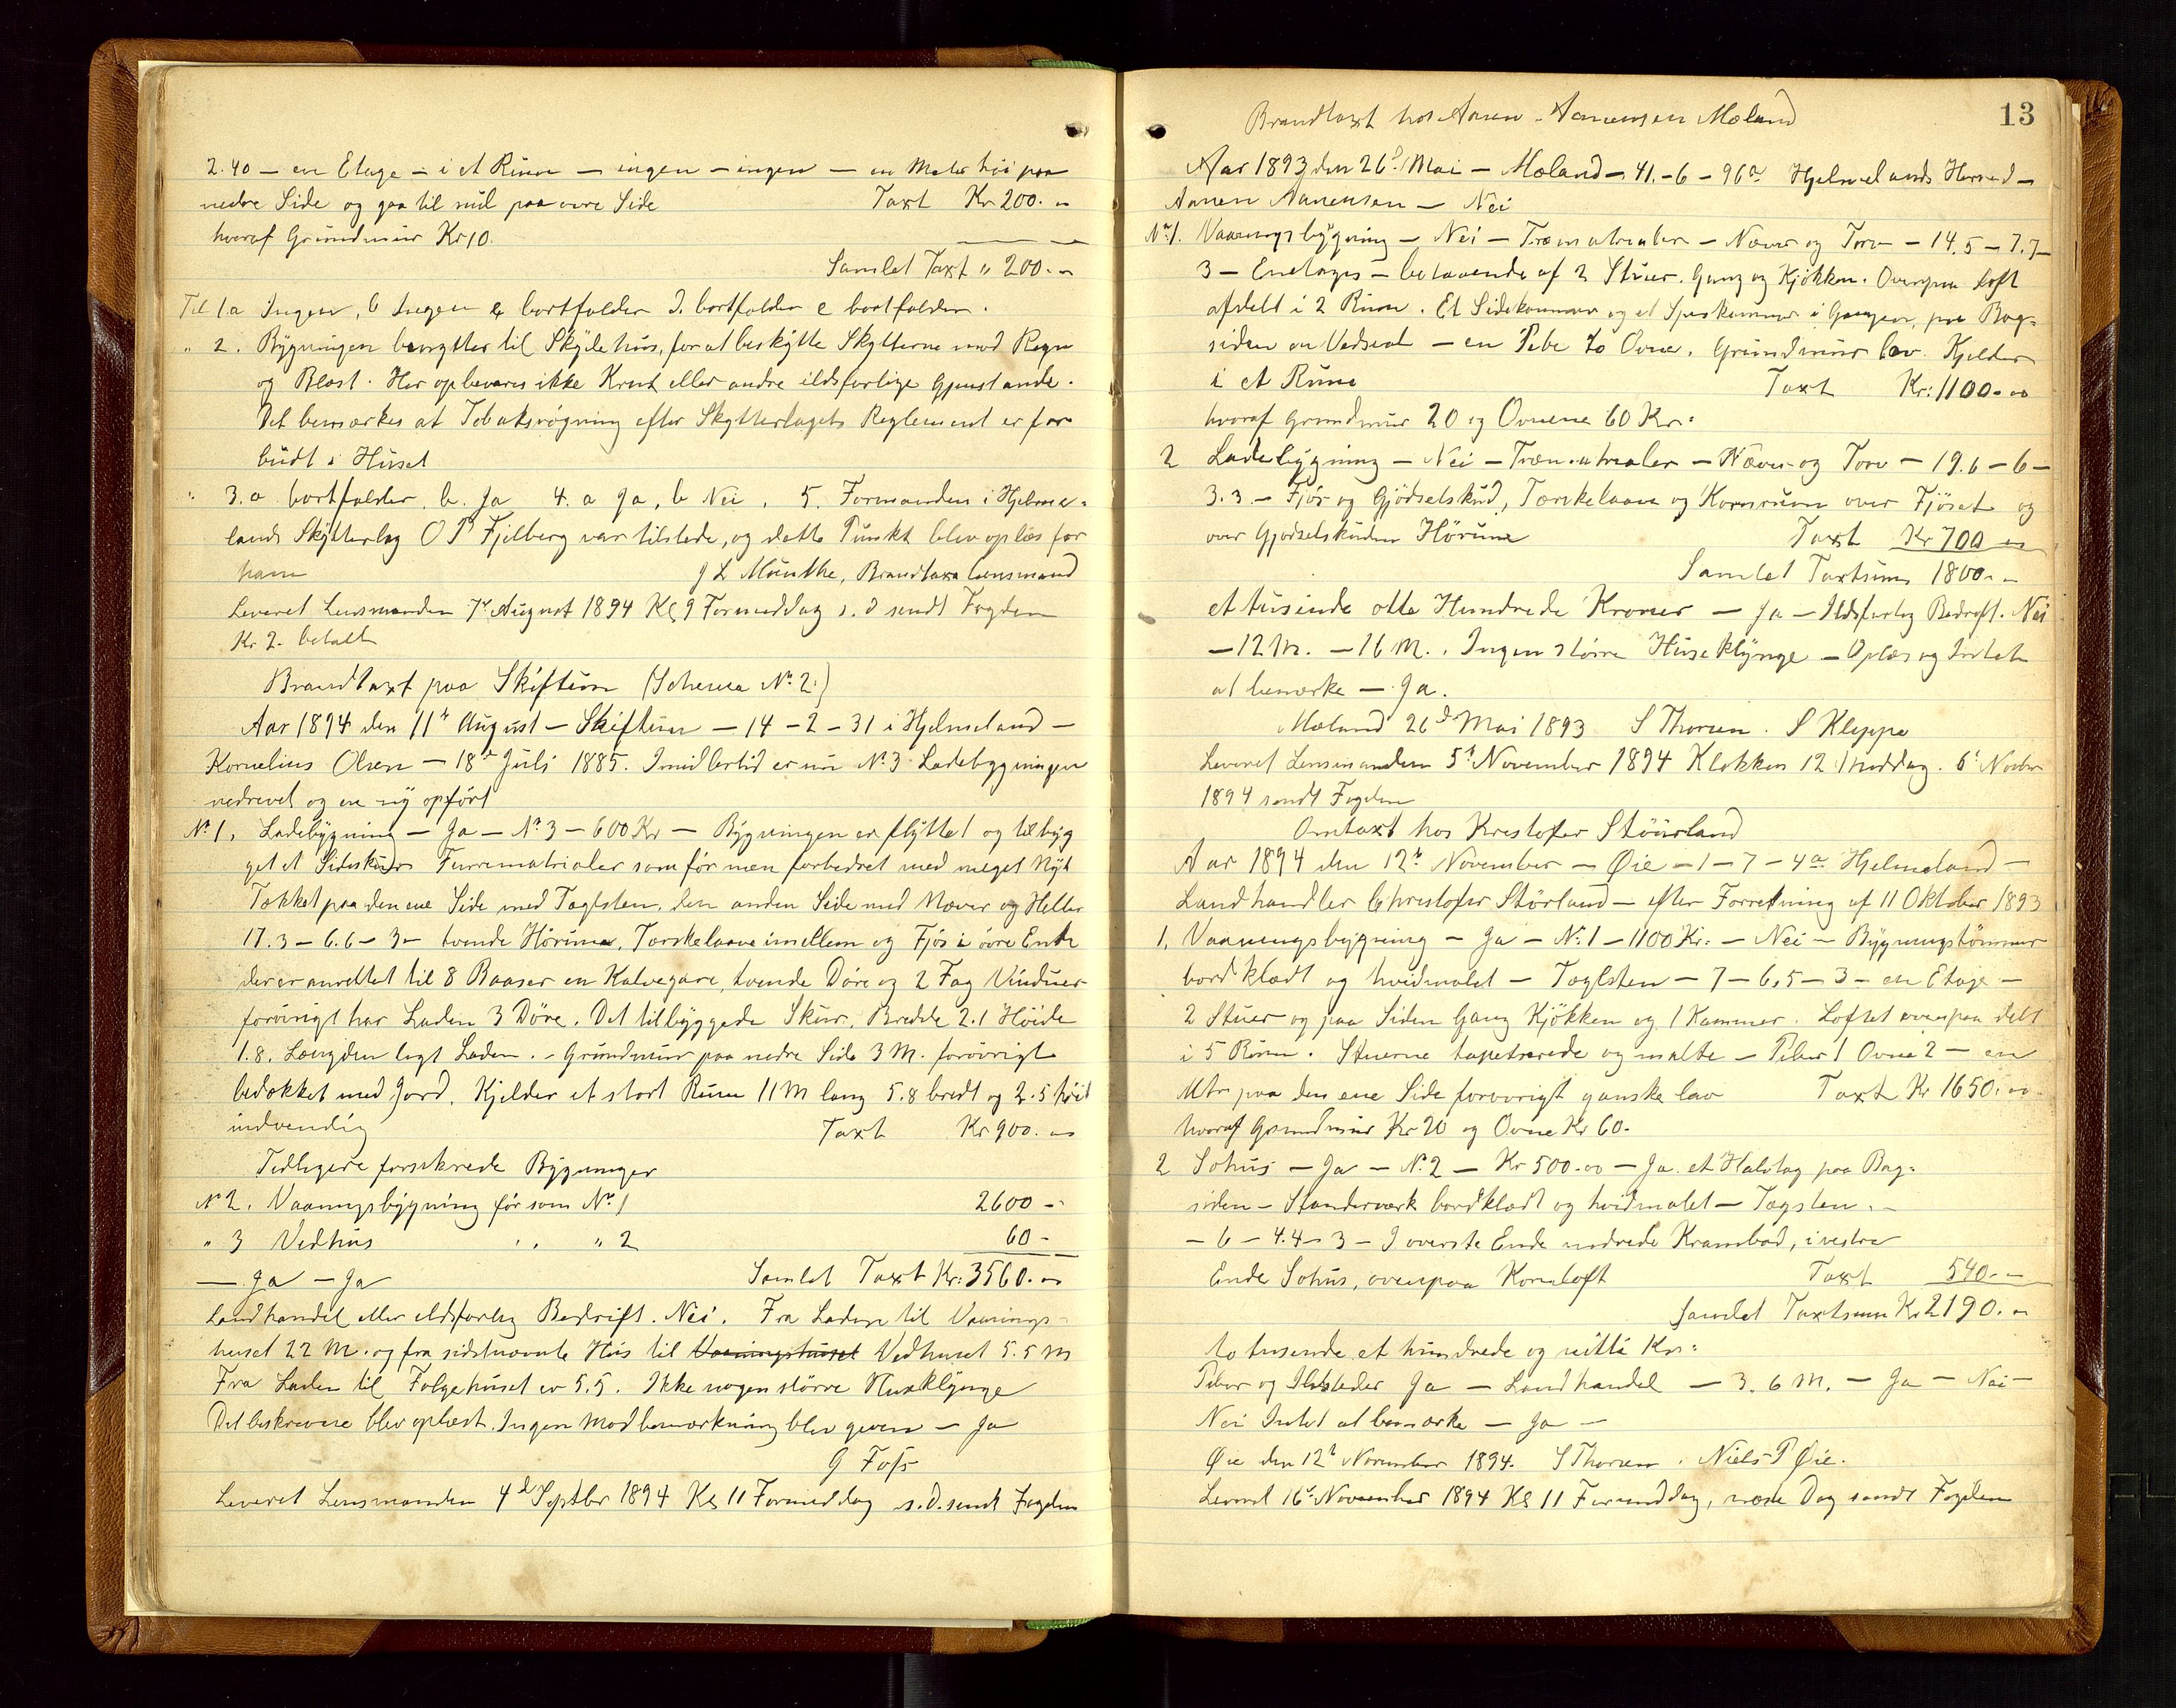 2.40 – en Etage – i et Rum – ingen – ingen – en Meter høi paa
nedre Side og gaa til nul paa øvre Side Taxt Kr 200.00
hvoraf Grundmur Kr 10.
Samlet Taxt " 200.00
Til 1.a Ingen, b Ingen c bortfalder d. bortfalder e bortfalder.
" 2. Bygningen benyttes til Skydehus, for at beskytte Skytterne mod Regn
og Blæst. Her opbevares ikke Krut eller andre ildsfarlige Gjenstande.
Det bemærkes at Tobaksrøgning efter Skytterlagets Reglement er for
budt i Huset
" 3.a bortfalder, b. Ja 4. a Ja, b Nei, 5. Formanden i Hjelme-
lands Skytterlag O P Fjelberg var tilstede, og dette Punkt blev oplæs for
ham J L Munthe, Brandtaxa Lensmand
Leveret Lensmanden 7de August 1894 Kl 9 Formeddag s. d sendt Fogden
Kr 2. betalt
Brandtaxt paa Skiftun (Schema No 2.)
Aar 1894 den 11te August – Skiftun – 14 – 2 – 31 i Hjelmeland –
Kornelius Olsen – 18de Juli 1885. Imidlertid er nu No 3 Ladebygningen
nedrevet og en ny opført
No 1. Ladebygning – Ja – No 3 – 600 Kr – Bygningen er flyttet og tilbyg
get et Sideskur Furrematrialer som før men forbedret med meget Nyt
Tækket paa den ene Side med Taglsten, den anden Side med Næver og Heller
17.3 – 6.6 – 3 – tvende Hørume, Tærskelaave imellem og Fjøs i øvre Ende
der er anrettet til 8 Baaser en Kalvegare, tvende Døre og 2 Fag Vinduer
forøvrigt har Laden 3 Døre. Det tilbyggede Skur, Bredde 2.1 Høide
1.8. Længden ligt Laden. – Grundmur paa nedre Side 3 M. forøvrigt
bedækket med Jord. Kjelder et stort Rum 11 M lang 5.8 bredt og 2.5 høit
indvendig Taxt Kr 900.00
Tidligere forsikrede Bygninger
No 2. Vaaningsbygning før som No 1 2600 –
" 3 Vedhus " " 2 60 –
– Ja – Ja Samlet Taxt Kr: 3560.00
Landhandel eller ildsfarlig Bedrift. Nei. Fra Laden til Vaanings-
huset 22 M. og fra sidstnævnte Hus til Vaaningshuset Vedhuset 5.5 M
Fra Laden til Følgehuset er 5.5. Ikke nogen større Husklynge
Det beskrevne blev oplæst. Ingen Modbemærkning blev given – Ja
G Foss
Leveret Lensmanden 4de Septbr 1894 Kl 11 Formeddag s. d. sendt Fogden
13
Brandtaxt hos Aanen Aanensen Mæland
Aar 1893 den 26de Mai – Mæland – 41. – 6 – 96a Hjelmelands Herred –
Aanen Aanensen – Nei
No 1. Vaaningsbygning – Nei – Træmatrialer – Næver og Torv – 14.5 – 7.7 –
3 – Enetages – bestaaende af 2 Stuer. Gang og Kjøkken. Ovenpaa Loft
afdelt i 2 Rum. Et Sidekammer og et Spiskammer i Gangen, paa Bag-
siden en Vedsval – en Pibe to Ovne. Grundmur lav. Kjelder
i et Rum Taxt Kr: 1100.00
hvoraf Grundmur 20 og Ovnene 60 Kr.
2 Ladebygning – Nei – Træmatrialer – Næver og Torv – 19.6 – 6 –
3.3 – Fjøs og Gjødselskud, Tærskelaave og Kornrum over Fjøset og
over Gjødselskuden Hørum Taxt Kr 700 00
Samlet Taxtsum 1800.–
et tusinde otte Hundrede Kroner – Ja – Ildsfarlig Bedrift. Nei
– 12 M. – 16 M. . Ingen større Huseklynge – Oplæs og Intet
at bemærke – Ja.
Mæland 26de Mai 1893 S Thorsen. S Kleppe
Leveret Lensmanden 5te November 1894 Klokken 12 Middag. 6te Novbr
1894 sendt Fogden
Omtaxt hos Kristofer Størland
Aar 1894 den 12te November – Øie – 1 – 7 – 4a Hjelmeland –
Landhandler Christofer Størland – efter Forretning af 11 Oktober 1893
1. Vaaningsbygning – Ja – No 1 – 1100 Kr. – Nei – Bygningstømmer
bordklædt og hvidmalet – Taglsten – 7 – 6,5 – 3 – en Etage –
2 Stuer og paa Siden Gang Kjøkken og 1 Kammer. Loftet ovenpaa delt
i 5 Rum. Stuerne tapetserede og malte – Piber 1 Ovne 2 – en
Mtr paa den ene Side forøvrigt ganske lav Taxt Kr 1650.00
hvoraf Grundmur Kr 20 og Ovne Kr 60.
2 Søhus – Ja – No 2 – Kr 500.00 – Ja. et Halvtag paa Bag-
siden – Standerværk bordklædt og hvidmalet – Tagsten. –
– 6 – 4.4 – 3 – I øverste Ende nedrede Krambod, i vestre
Ende Søhus, ovenpaa Kornloft Taxt 540.–
Samlet Taxtsum Kr 2190.00
to tusende et hundrede og nitti Kr:
Piber og Ildsteder Ja – Landhandel – 3. 6 M. – Ja – Nei –
Nei Intet at bemærke – Ja –
Øie den 12te November 1894. S Thorsen. Niels P Øie.
Leveret 16de November 1894 Kl 11 Formeddag, næste Dag sendt Fogden